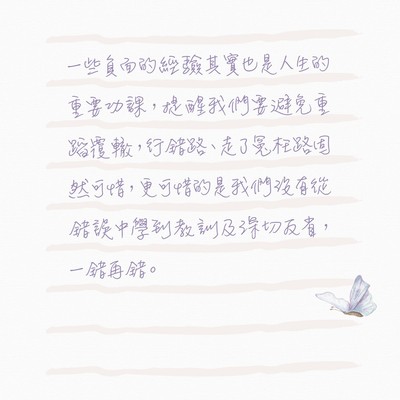 一些負面的經驗其實也是人生的
重要功課，提醒我們要避免重
蹈覆轍，行錯路、走了冤枉路固
然可惜，更可惜的是我們沒有從
錯誤中學到教訓及深切反省，
一錯再錯。